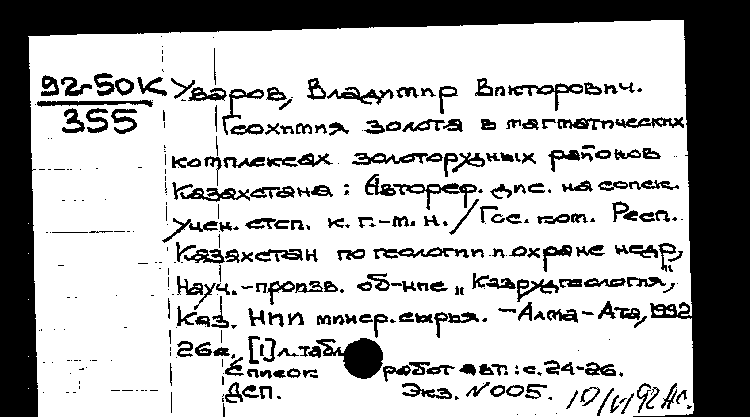 92-50К Уваров, Владимир Викторович.
355
Геохимия золота в магматических
комплексах золоторудных районов
Казахстана: Автореф. дис. на соиск.
учен. степ. к. г.-м. н. / Гос. ком. Респ.
Казахстан по геологии и охране недр,
Науч.-произв. об-ние „Казрудгеология",
Каз. НПИ минер. сырья. - Алма-Ата, 1992
26с, [1] л. табл.
Список работ авт.: с. 24-26.
Дсп. Экз. N 005.